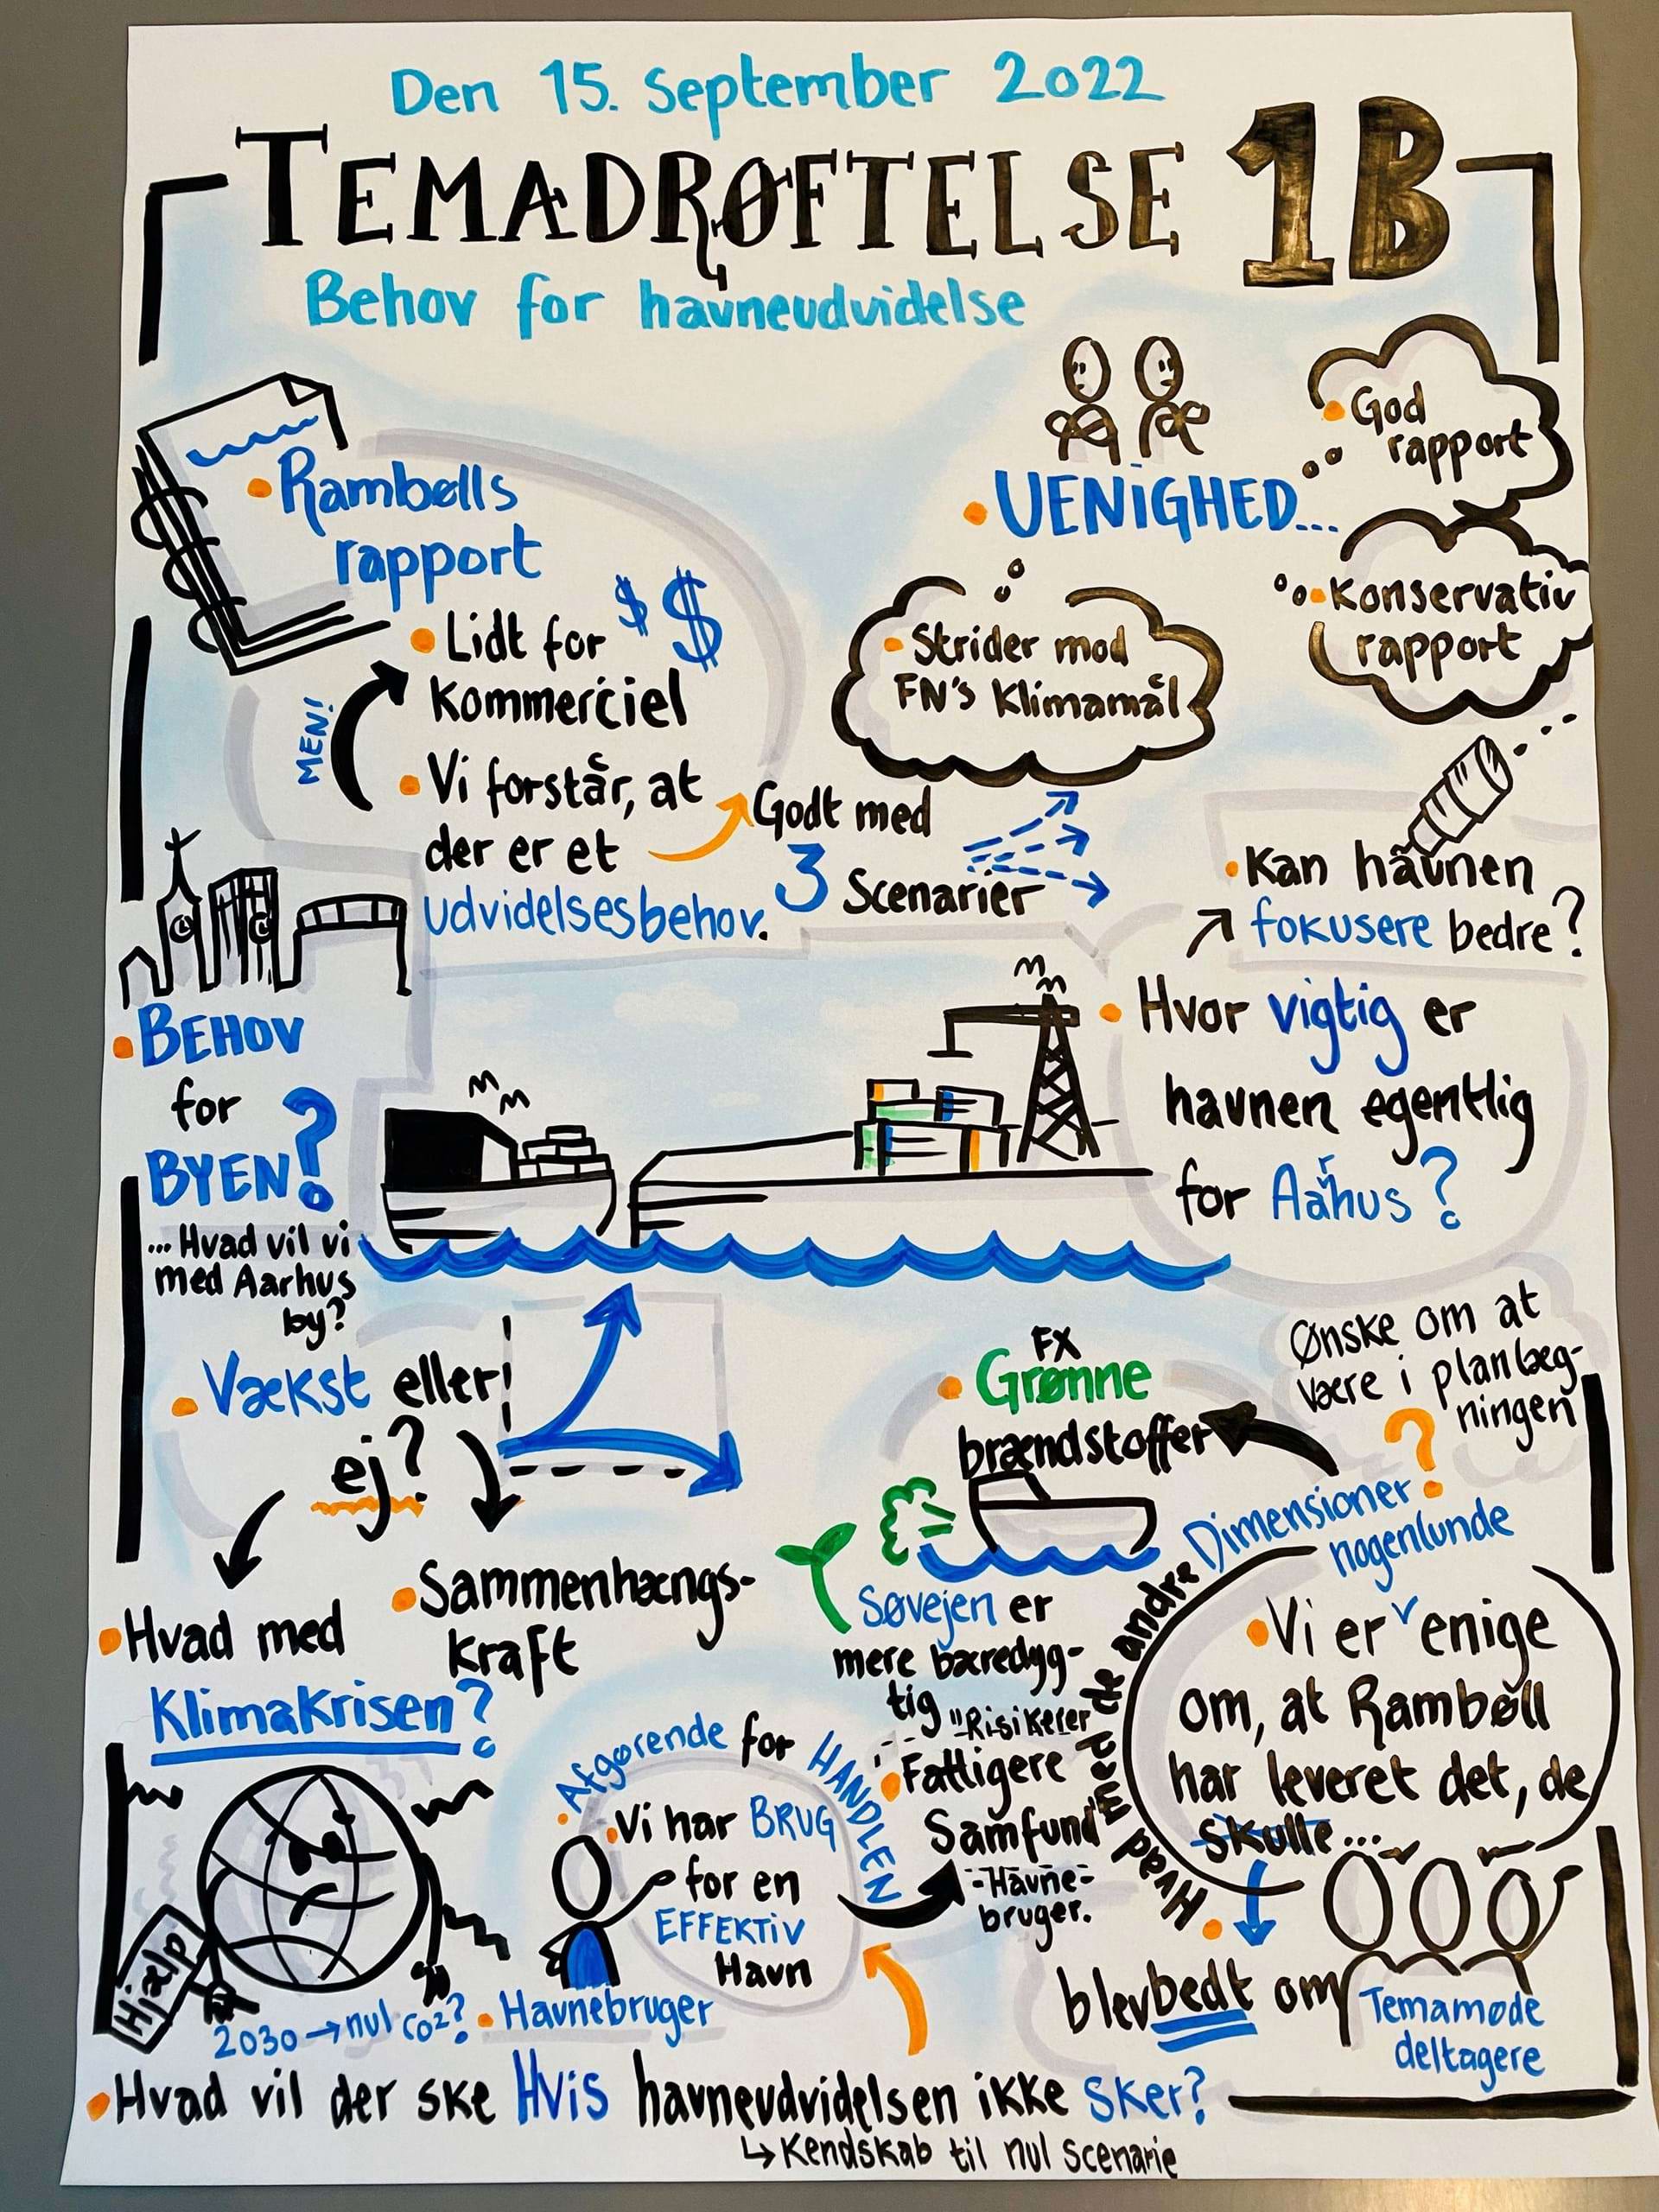 Den 15. September 2022
TEMADRØFTELSE 1B
Behov for havneudvidelse
Rambølls
rapport
Lidt for $ $
Kommerciel
MEN!
Vi forstår, at
der er et
udvidelsesbehov.
Godt med
3 Scenarier
UENIGHED...
God
rapport
Konservativ
rapport
Strider mod
FN's Klimamål
Kan havnen
fokusere bedre?
Hvor vigtig er
havnen egentlig
for Aarhus?
BEHOV
for
BYEN?
... Hvad vil vi
med Aarhus
by?
Vækst eller
ej?
Hvad med
Klimakrisen?
Sammenhængs-
kraft
Hjælp
2030 → nul CO2?
FX
Grønne
brændstoffer
Ønske om at
være i planlæg-
ningen
Søvejen er
mere bæredyg-
tig
Hvad med de andre Dimensioner?
nogenlunde
Vi er ˅ enige
om, at Rambøll
har leveret det, de
skulle...
blev bedt om
Temamøde
deltagere
Afgørende for HANDLEN
Vi har BRUG
for en
EFFEKTIV
Havn
Havnebruger
"Risikerer
Fattigere
Samfund"
-Havne-
bruger.
Hvad vil der ske Hvis havneudvidelsen ikke sker?
↳ Kendskab til nul scenarie